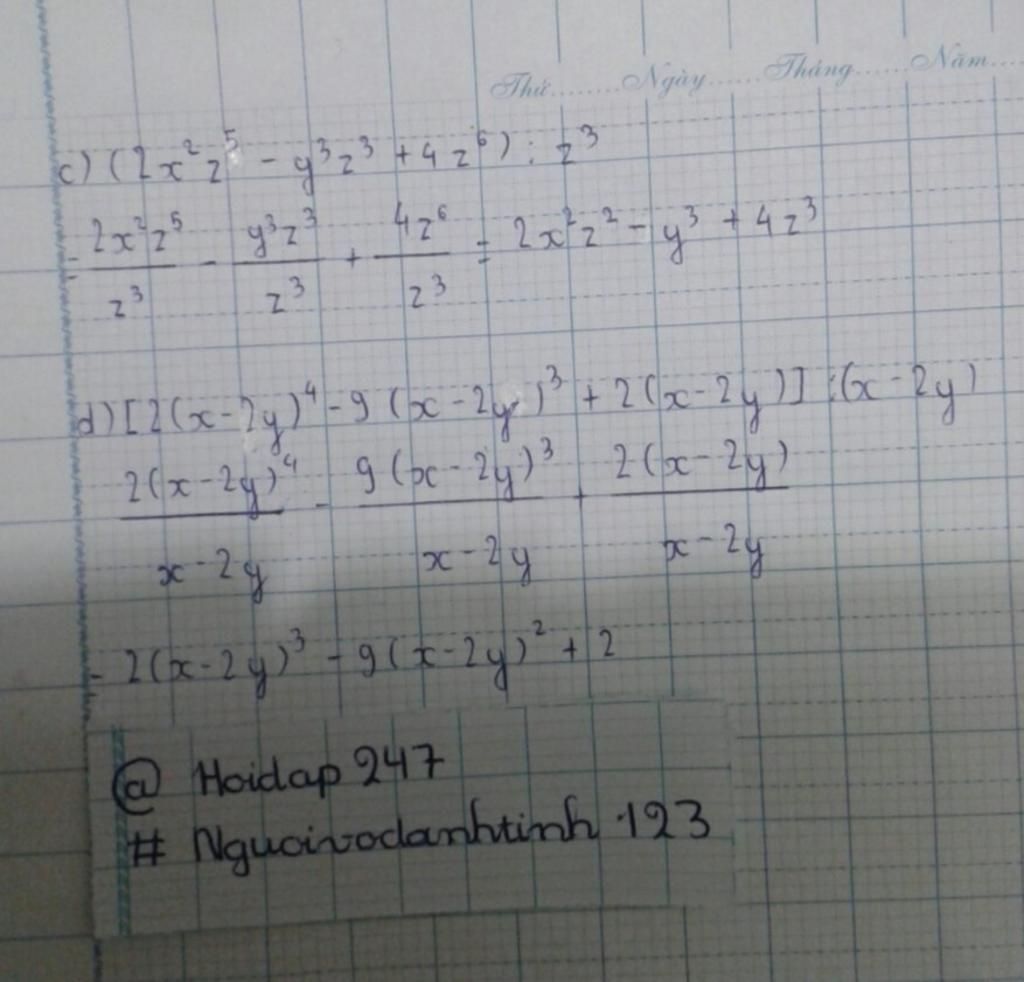 Thứ........Ngày.......Tháng......Năm....
c) (2x²z⁵ - y³z³ + 4z⁶) : z³
= 2x²z⁵/z³ - y³z³/z³ + 4z⁶/z³ = 2x²z² - y³ + 4z³
d) [2(x-2y)⁴ - 9(x-2y)³ + 2(x-2y)] : (x-2y)
2(x-2y)⁴/x-2y - 9(x-2y)³/x-2y + 2(x-2y)/x-2y
= 2(x-2y)³ - 9(x-2y)² + 2
@ Hoidap 247
# Nguoivodanhtinh 123